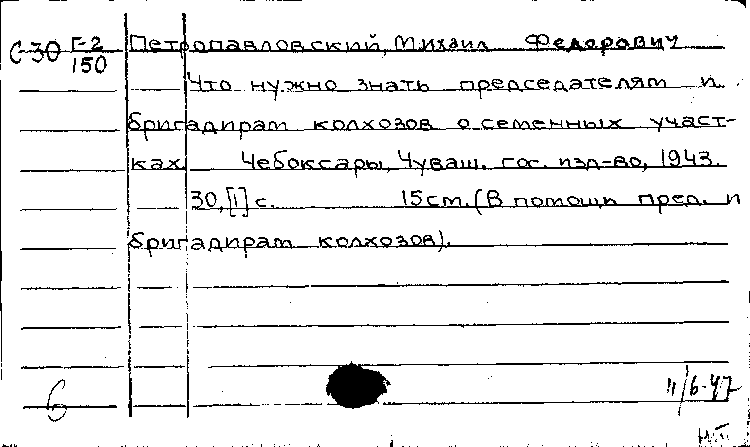 С-30 Г-2 Петропавловский, Михаил Федорович
150
Что нужно знать председателям и
бригадирам колхозов о семенных участ-
ках. Чебоксары, Чуваш. гос. изд-во, 1943.
30,[1] с. 15см. (В помощь пред. и
бригадирам колхозов).
6
11/6-47